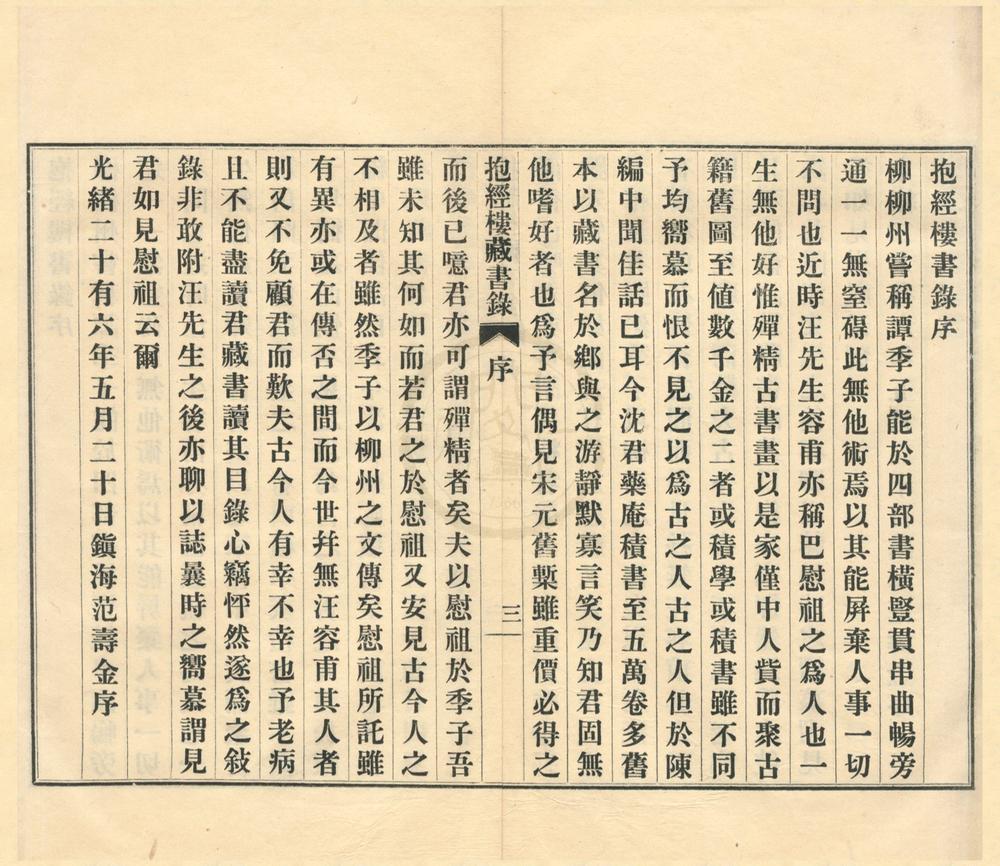 抱經樓書錄序
柳柳州嘗稱譚季子能於四部書橫豎貫串曲暢旁
通一一無窒碍此無他術焉以其能屏棄人事一切
不問也近時汪先生容甫亦稱巴慰祖之爲人也一
生無他好惟殫精古書畫以是家僅中人貲而聚古
籍舊圖至値數千金之二者或積學或積書雖不同
予均嚮慕而恨不見之以爲古之人古之人但於陳
編中聞佳話已耳今沈君藥庵積書至五萬卷多舊
本以藏書名於鄉與之游靜默寡言笑乃知君固無
他嗜好者也爲予言偶見宋元舊槧雖重價必得之
抱經樓藏書錄 序 三
而後已噫君亦可謂殫精者矣夫以慰祖於季子吾
雖未知其何如而若君之於慰祖又安見古今人之
不相及者雖然季子以柳州之文傳矣慰祖所託雖
有異亦或在傳否之間而今世幷無汪容甫其人者
則又不免顧君而歎夫古今人有幸不幸也予老病
且不能盡讀君藏書讀其目錄心竊怦然遂爲之敍
錄非敢附汪先生之後亦聊以誌曩時之嚮慕謂見
君如見慰祖云爾
光緒二十有六年五月二十日鎭海范壽金序